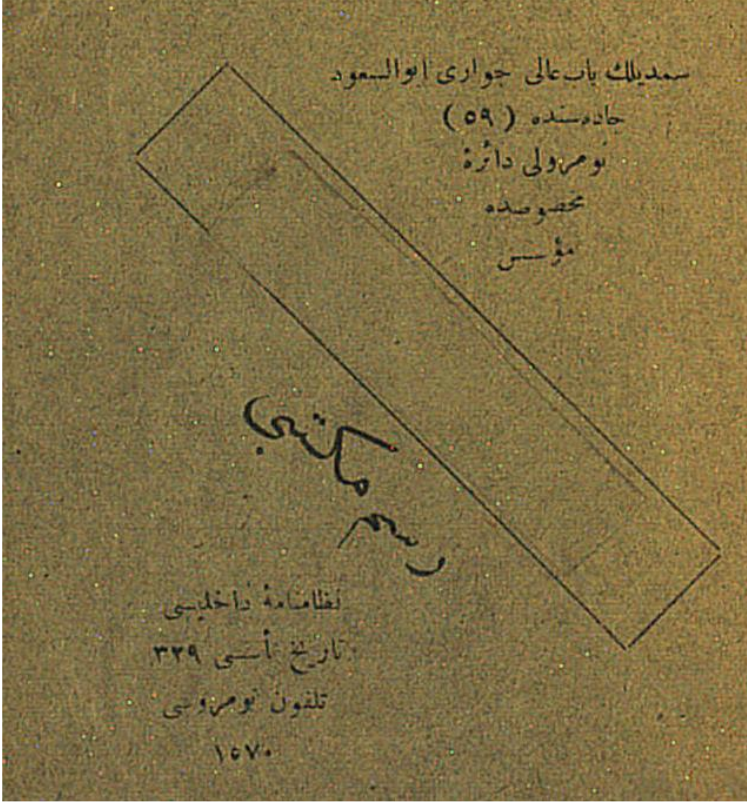 سمديلك باب عالى جوارى ابوالسعود
جاده‌سنده (٥٩)
نومرولى دائرۀ
مخصوصده
مؤسس
نظامنامۀ داخليسى
تاريخ تأسسى ٣٢٩
تلفون نومروسى
١٥٧٠